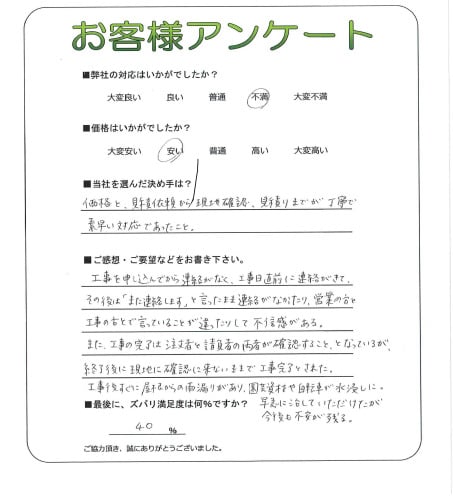 お客様アンケート
■弊社の対応はいかがでしたか？
大変良い 良い 普通 不満 大変不満
■価格はいかがでしたか？
大変安い 安い 普通 高い 大変高い
■当社を選んだ決め手は？
価格と、見積依頼から現地確認、見積りまでが丁寧で
素早い対応であったこと。
■ご感想・ご要望などをお書き下さい。
工事を申し込んでから連絡がなく、工事日直前に連絡がきて、
その後は「また連絡します」と言ったまま連絡がなかったり、営業の方と
工事の方とで言っていることが違ったりして不信感がある。
また、工事の完了は注文者と請負者の両者が確認すること、となっているが、
終了後に現地に確認に来ないままで工事完了とされた。
工事後すぐに屋根からの雨漏りがあり、資材や自転車が水浸しに。
■最後に、ズバリ満足度は何％ですか？
早急に治していただけたが
今後も不安が残る。
40 %
ご協力頂き、誠にありがとうございました。